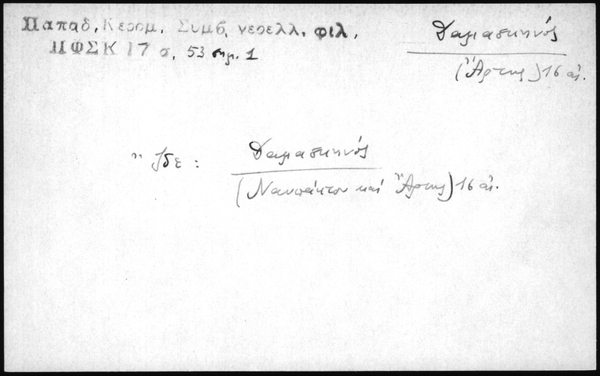 Παπαδ. Κεραμ. Συμβ. νεοελλ. φιλ.
ΗΦΣΚ 17 σ. 53 σημ. 1
Δαμασκηνός
(Ἄρτης) 16 αἰ.
Ἴδε : Δαμασκηνός
(Ναυπάκτου καὶ Ἄρτης) 16 αἰ.